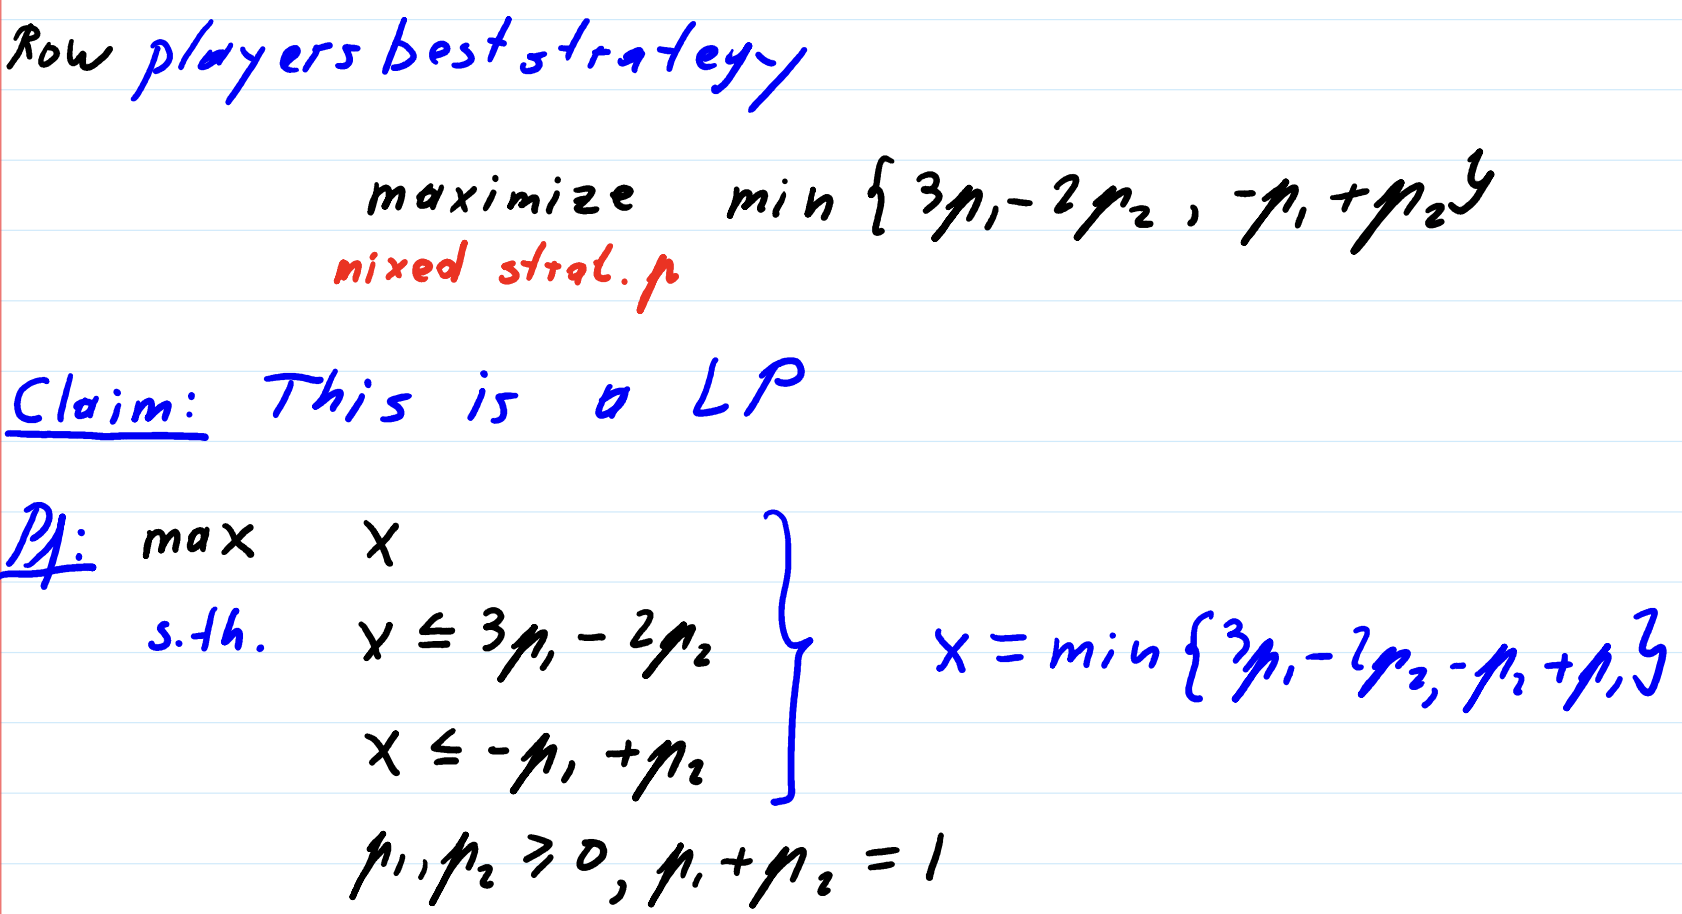 Row players best strategy
maximize min { 3p₁ - 2p₂ , -p₁ + p₂ }
mixed strat. p
Claim: This is a LP
Pf: max x
s.th. x ≤ 3p₁ - 2p₂
x = min { 3p₁ - 2p₂, -p₂ + p₁ }
x ≤ -p₁ + p₂
p₁, p₂ ≥ 0, p₁ + p₂ = 1